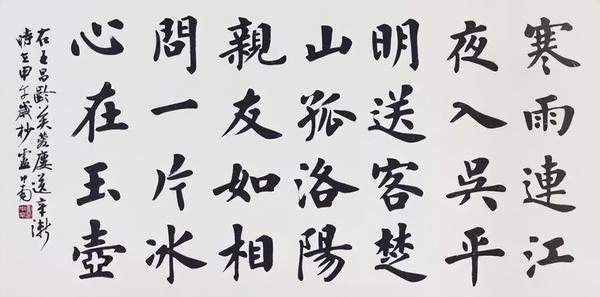 寒雨連江
夜入吳平
明送客楚
山孤洛陽
親友如相
問一片冰
心在玉壺
右王昌齡芙蓉廔送辛漸
時在甲午歲杪盧中南